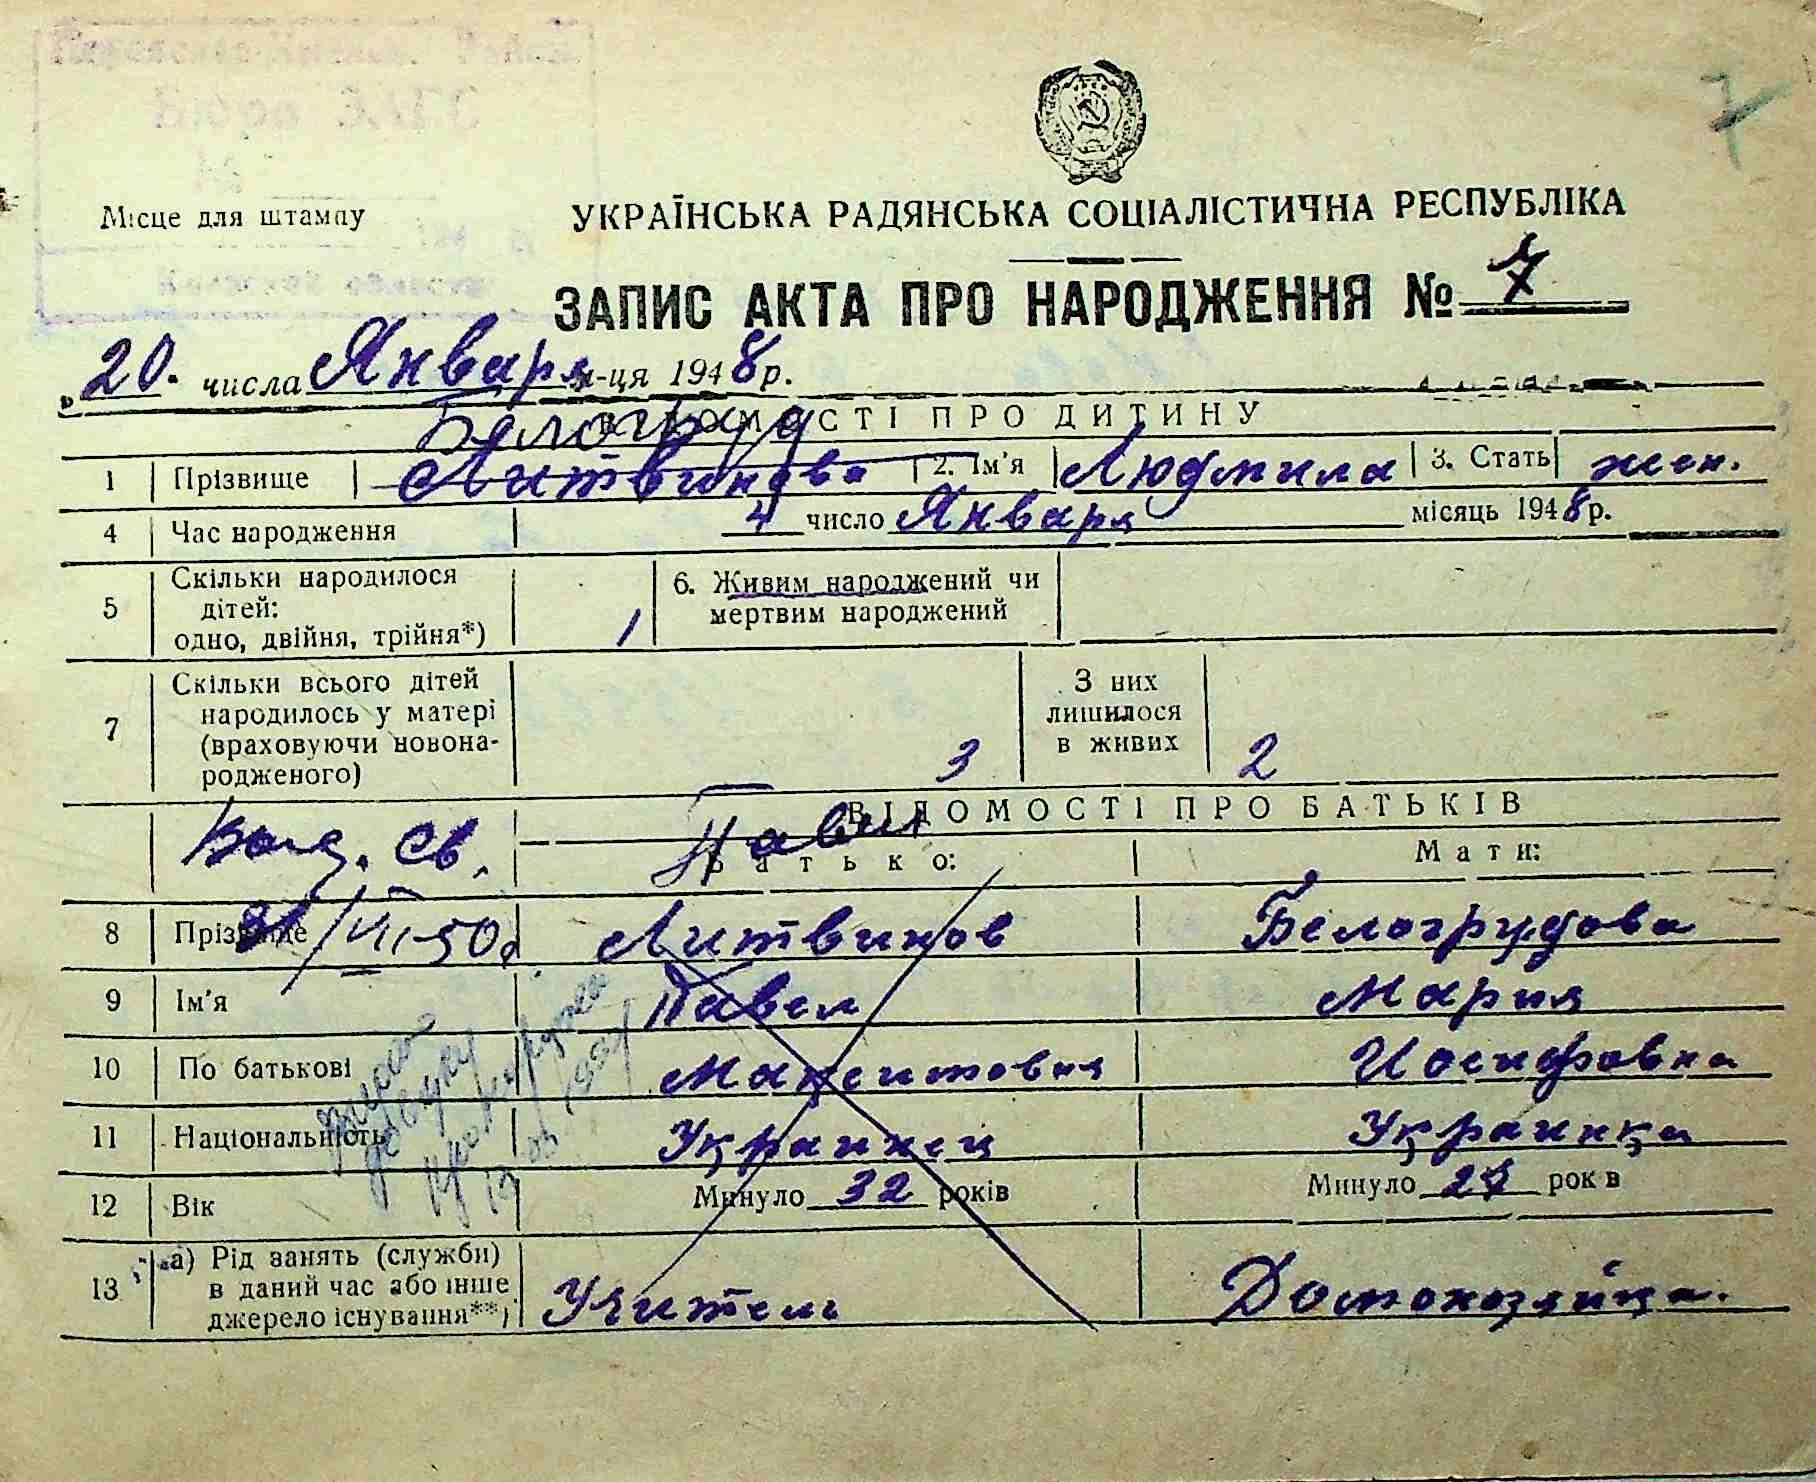 7
Місце для штампу
УКРАЇНСЬКА РАДЯНСЬКА СОЦІАЛІСТИЧНА РЕСПУБЛІКА
ЗАПИС АКТА ПРО НАРОДЖЕННЯ № 7
„20. числа Января м-ця 1948 р.
ВІДОМОСТІ ПРО ДИТИНУ
Белогруд
1 Прізвище Литвинова 2. Ім'я Людмила 3. Стать жен.
4 Час народження 4 число Января місяць 1948 р.
5 Скільки народилося дітей: одно, двійня, трійня*) 1 6. Живим народжений чи мертвим народжений
7 Скільки всього дітей народилось у матері (враховуючи новонародженого) 3 З них лишилося в живих 2
ВІДОМОСТІ ПРО БАТЬКІВ
св. Павел
Батько: Мати:
8 Прізвище Литвинов Белогрудова
9 Ім'я Павел Мария
10 По батькові Иосифовна
11 Національність Украинец Украинка
12 Вік Минуло 32 років Минуло 27 років
13 а) Рід занять (служби) в даний час або інше джерело існування**) Учитель Домохозяйка.